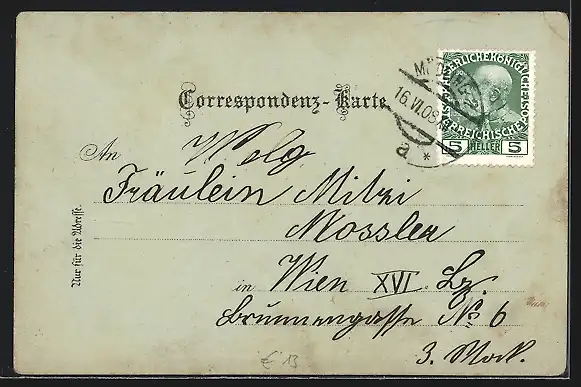 Correspondenz-Karte
16.VI.09
a *
KAISERLICHE KÖNIGLICHE
ÖSTERREICHISCHE
5 HELLER 5
An Wolg.
Fräulein Mitzi
Mossler
in Wien XVI Bz.
Brunnengasse No 6
3. Stock.
Nur für die Adresse.
€ 13